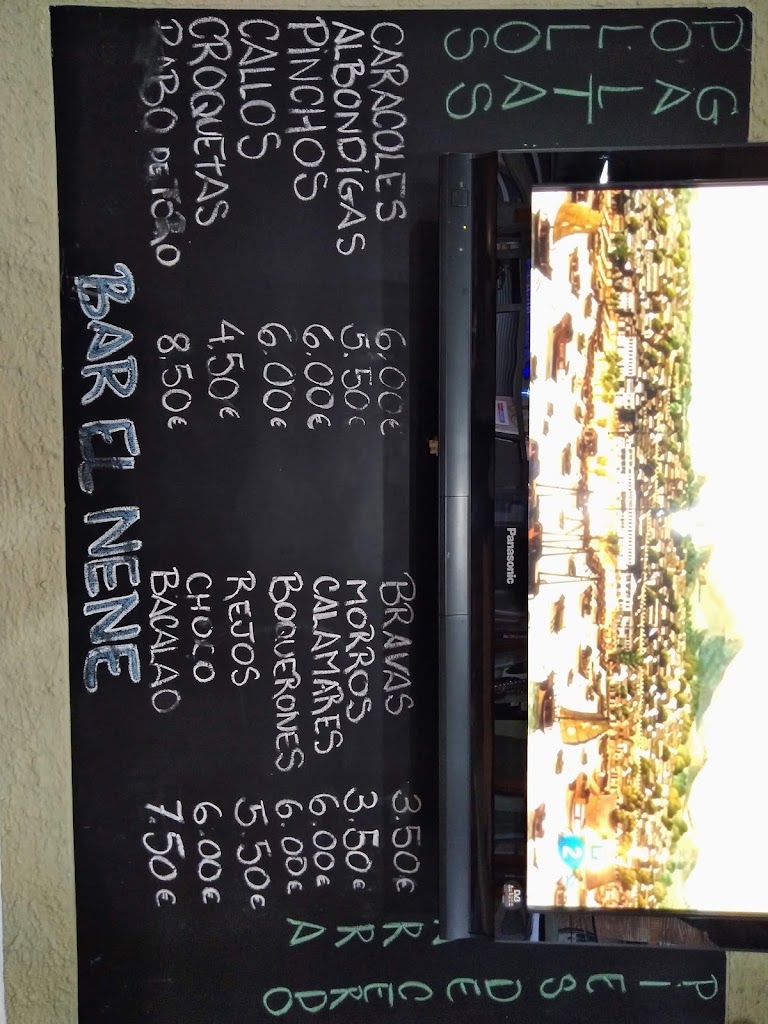 POLLOS
GALTAS
Panasonic
2
CARACOLES 6,00€
ALBONDIGAS 5.50€
PINCHOS 6.00€
CALLOS 6.00€
CROQUETAS 4,50€
RABO DE TORO 8.50€
BRAVAS 3.50€
MORROS 3.50€
CALAMARES 6.00€
BOQUERONES 6.00€
REJOS 5.50€
CHOCO 6.00€
BACALAO 7.50€
PIES DE CERDO
BAR EL NENE